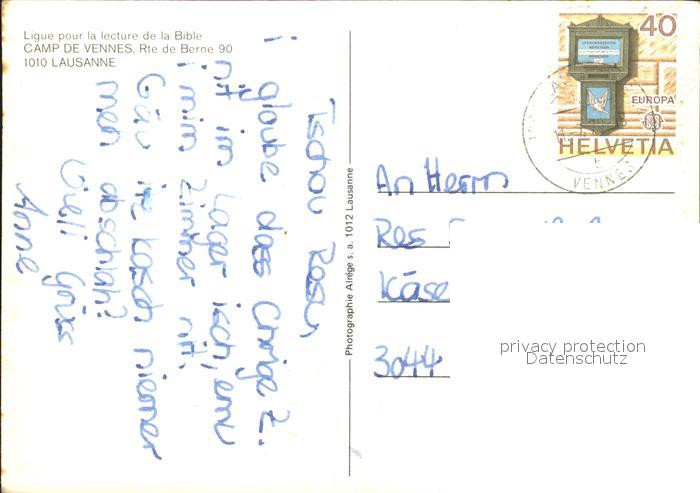 Ligue pour la lecture de la Bible
CAMP DE VENNES, Rte de Berne 90
1010 LAUSANNE
40
EUROPA
HELVETIA
VENNES
Tschou
i gloube dass Chrige Z.
nit im Lager isch, emu
i mim Zimmer nit.
Gäu itz kasch niemer
meh abschlah?
Vieli Grüess
Anne
Photographie Alrège s. a. 1012 Lausanne
An Herrn
Res
Käse
3044
privacy protection
Datenschutz